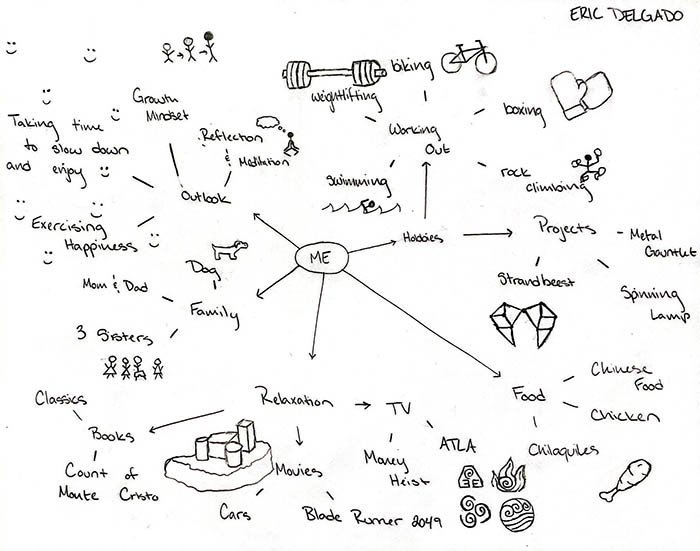 ERIC DELGADO
Growth
Mindset
Taking time
to slow down
and enjoy
Reflection
&
Meditation
Outlook
Exercising
Happiness
weightlifting
biking
boxing
Working
Out
swimming
rock
climbing
ME
Hobbies
Projects
Metal
Gauntlet
Strandbeest
Spinning
Lamp
Dog
Mom & Dad
Family
3 Sisters
Relaxation
TV
Food
Chinese
Food
Chicken
Chilaquiles
Classics
Books
Count of
Monte Cristo
Movies
Cars
Blade Runner 2049
Money
Heist
ATLA